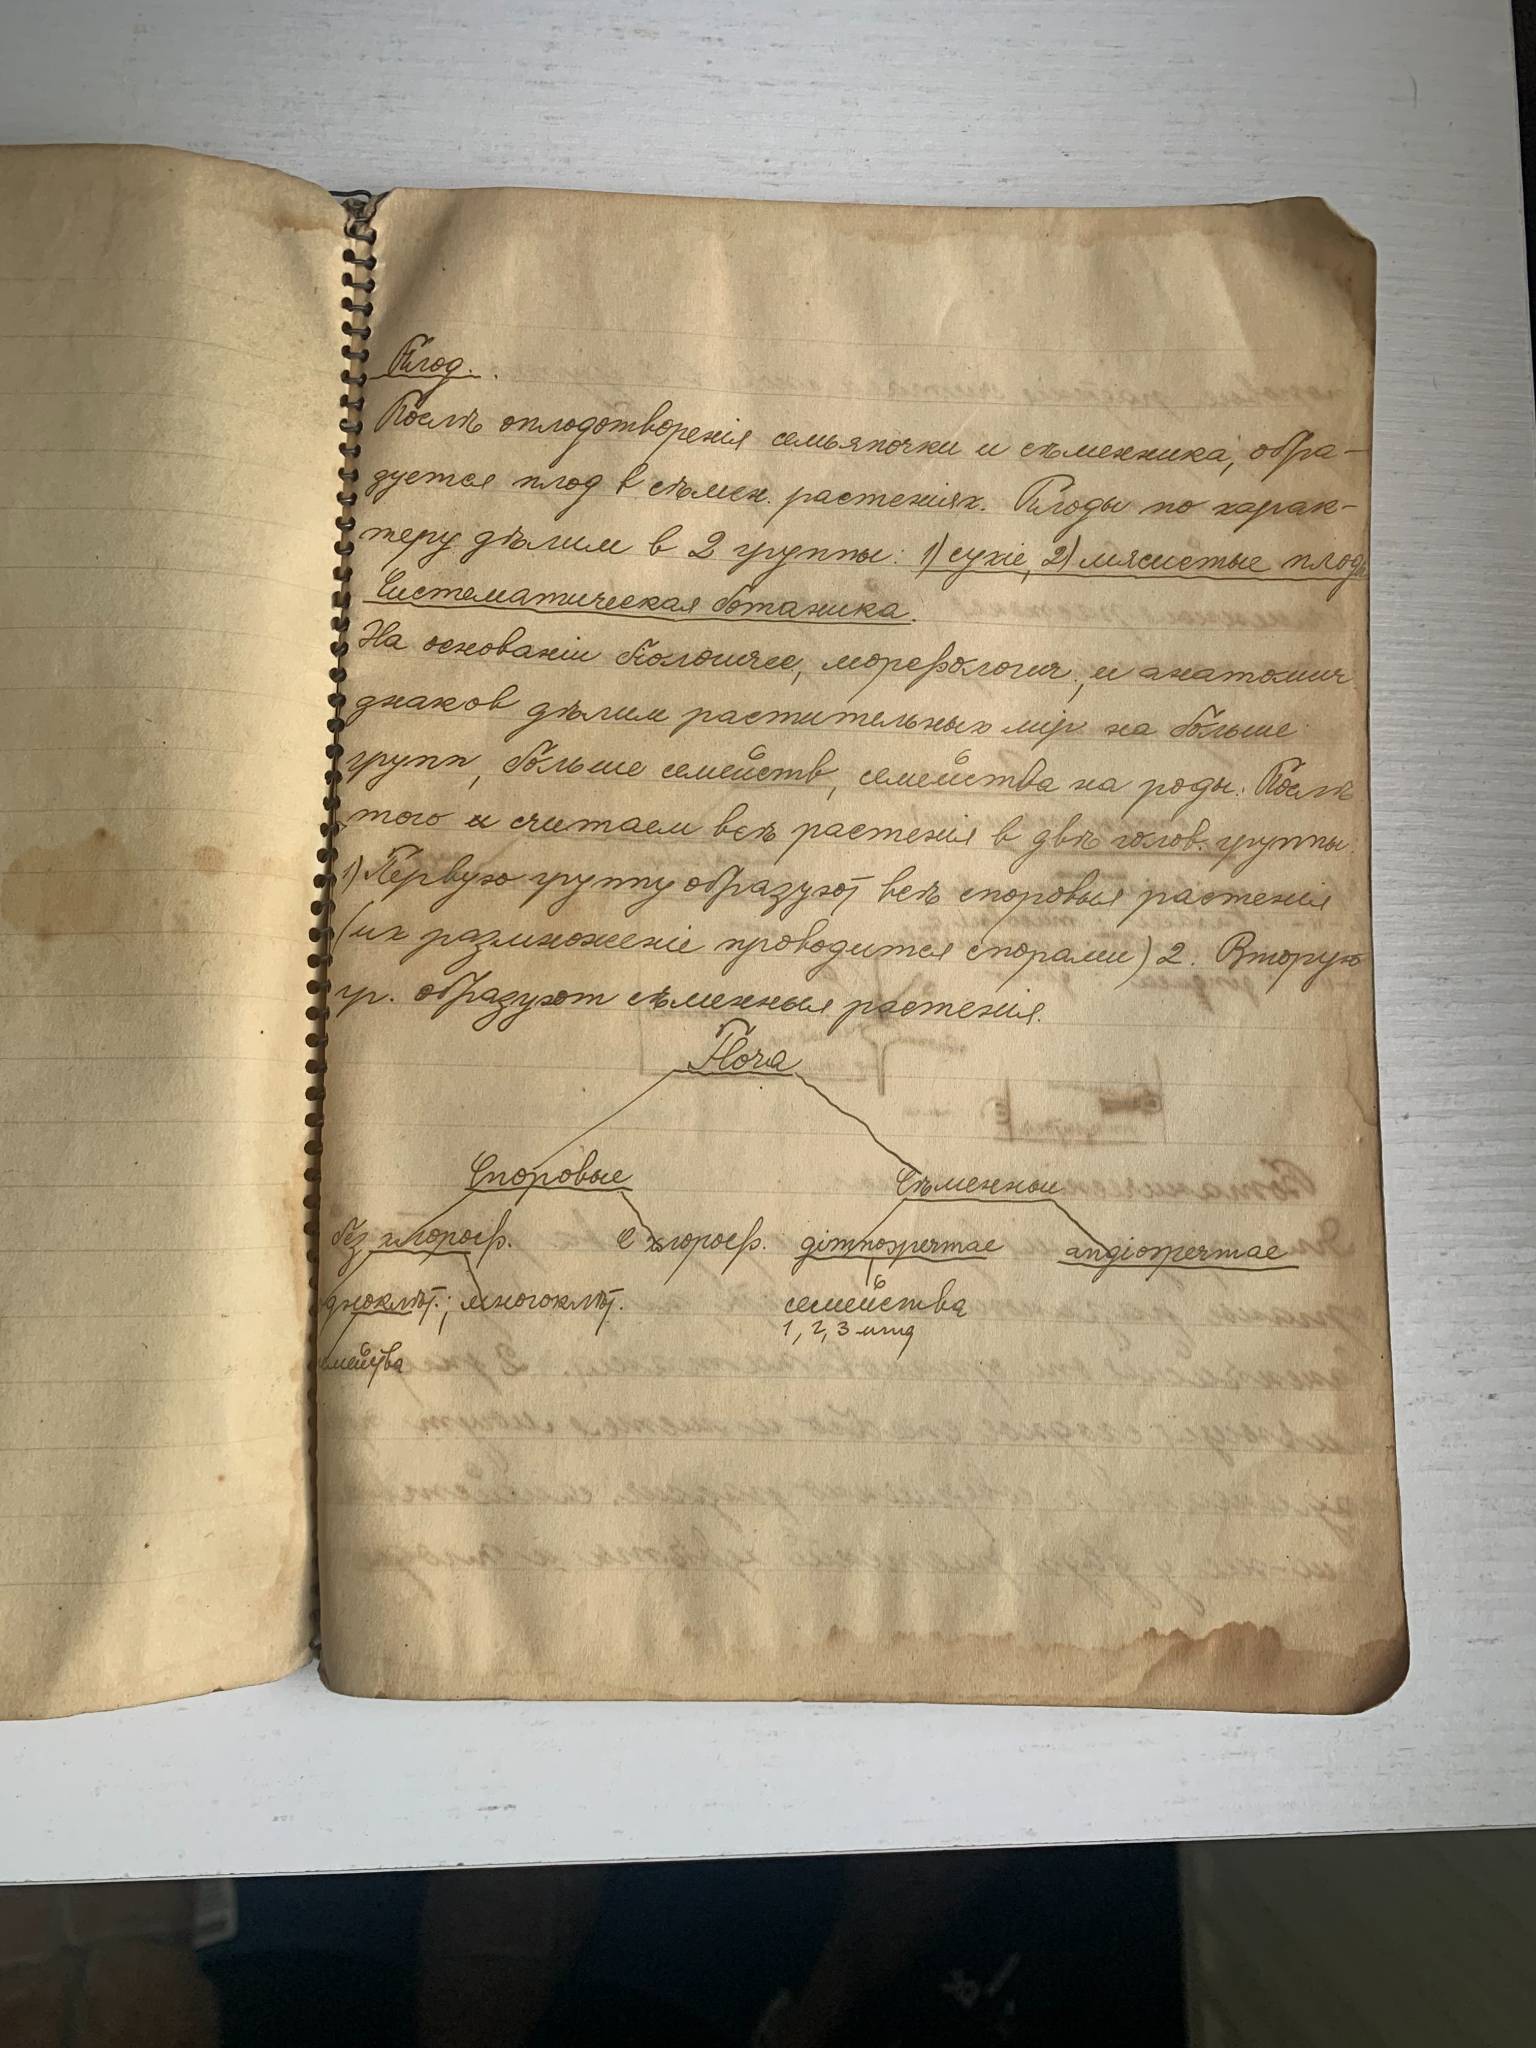 Плод.
Послѣ оплодотворенія семьяпочки и сѣменника, обра-
зуется плод в сѣмен. растеніях. Плоды по харак-
теру дѣлим в 2 группы: 1) сухіе, 2) мясистые плоды
Систематическая ботаника.
На основаніи биологич, морфологич., и анатомич.
знаков дѣлим растительных мір на больше
групп, больше семейств, семейства на роды. Послѣ
того и считаем всѣ растенія в двѣ голов. группы:
1) Первую группу образуют всѣ споровыя растенія
(их размноженіе проводится спорами) 2. Вторую
гр. образуют сѣменныя растенія.
Флора
Споровые Сѣменные
без хлороф. С хлороф. gimnospermae angiospermae
дноклѣт.; многоклѣт. семейства
1, 2, 3 итд